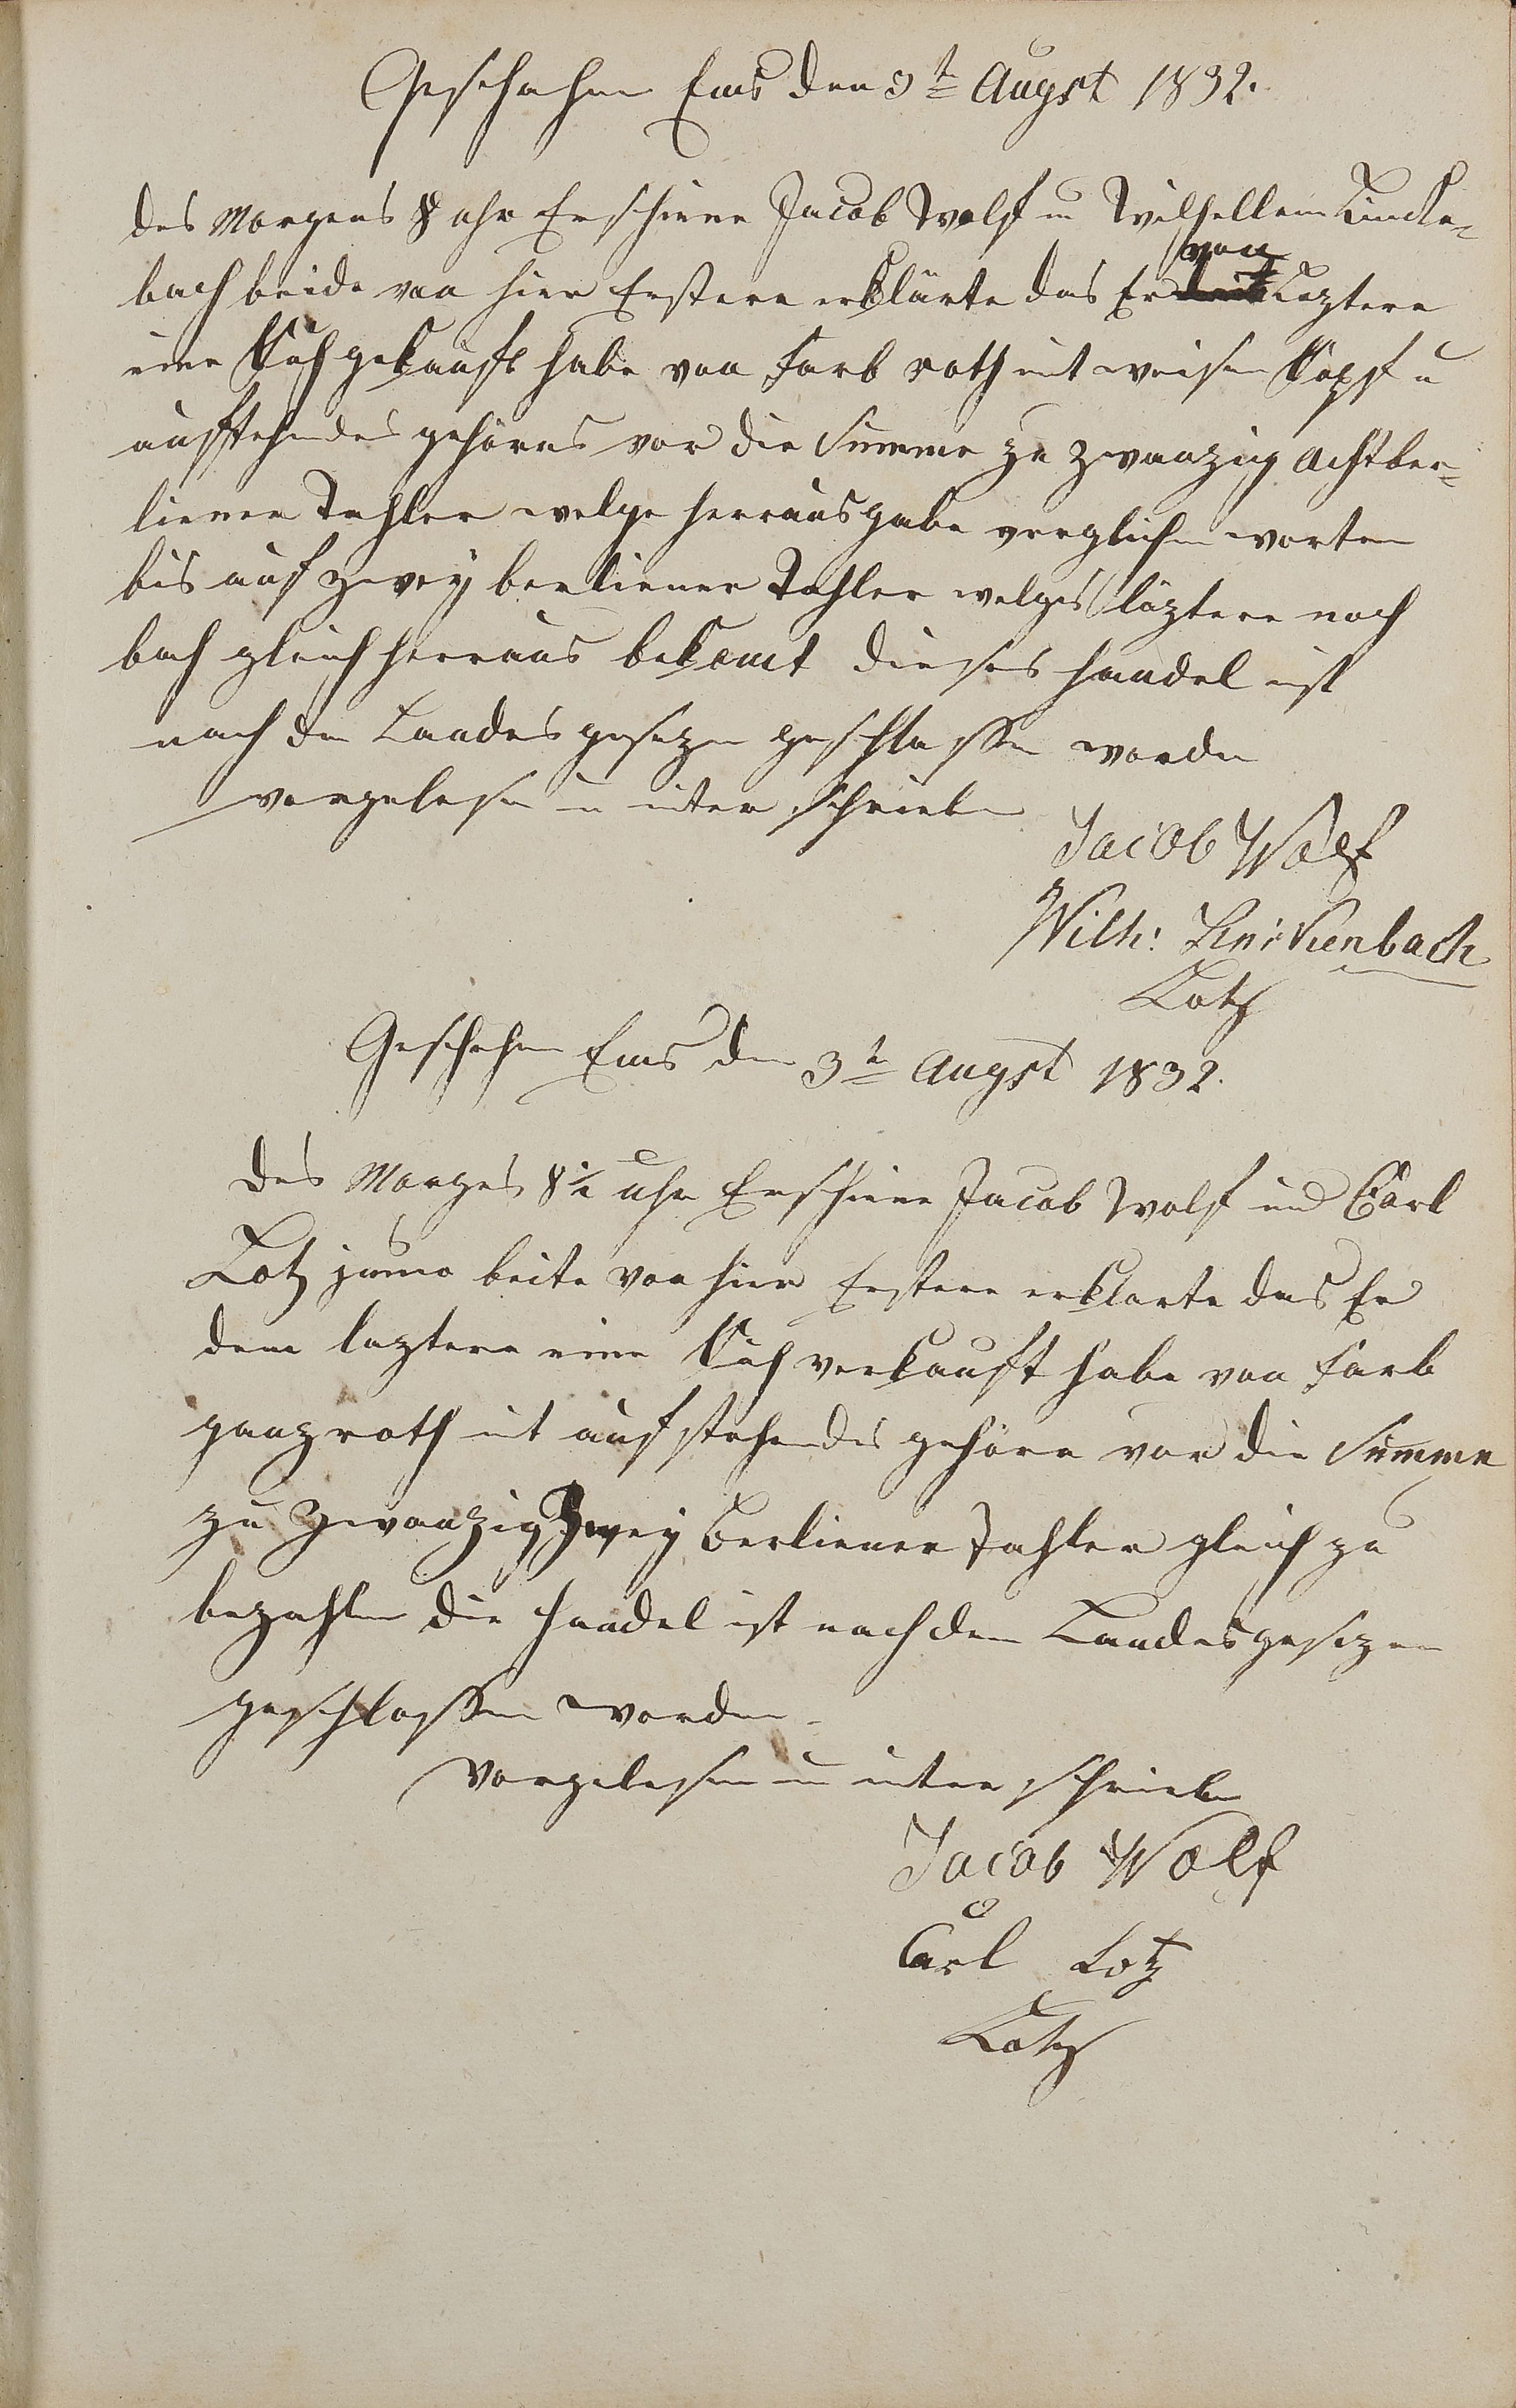 Geschehen Ems den 3t Augst 1832.
des Morgens 8 uhr Erschiene Jacob Wolf u Wilhellem Lincke-
bach beide von hier Erstere erklärte das Er von Leztere
eine Kuh gekauft habe von farb roth mit weisen Kopf u
aufstehendes gehörns vor die Summe zu zwanzig Achtber-
liener Tahler welge herrausgabe verglichen worten
bis auf zwey berliener Tahler welges läztere noch
bach gleich herraus bekomt dieses handel ist
nach den Landes gesezen geschlossen worden
vorgelesen u unter schrieben
Jacob Wolf
Wilh: Linkenbach
Lotz
Geschehen Ems den 3t Augst 1832.
des Morges 8½ uhr Erschiene Jacob Wolf und Carl
Lotz junio beite von hier Erstere erklarte das Er
dem leztere eine Kuh verkauft habe von farb
ganz roth mit aufstehendes gehörn vor die Summe
zu zwanzig Zwey berliener Tahler gleich zu
bezahlen die handel ist nach den Landes gesezen
geschlossen worden.
Vorgelesen u unter schrieben
Jacob Wolf
Carl Lotz
Lotz